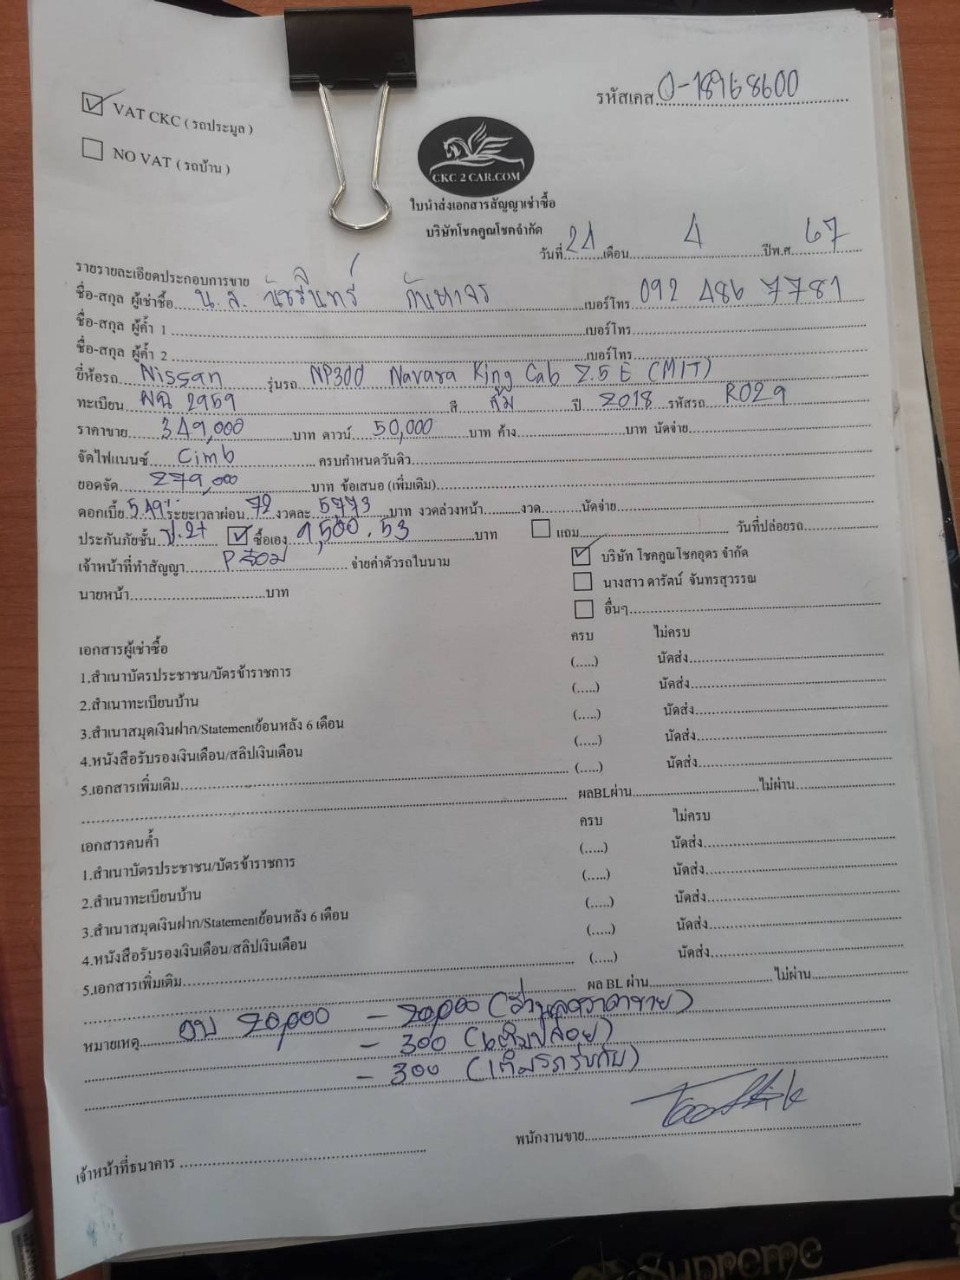 VAT CKC ( รถประมูล )
NO VAT ( รถบ้าน )
รหัสเคส 0-18968600
CKC 2 CAR.COM
ใบนำส่งเอกสารสัญญาเช่าซื้อ
บริษัทโชคคูณโชคจำกัด
วันที่ 24 เดือน 4 ปีพ.ศ. 67
รายรายละเอียดประกอบการขาย
ชื่อ-สกุล ผู้เช่าซื้อ น.ส. วัชรินทร์ เบอร์โทร 092 486 7781
ชื่อ-สกุล ผู้ค้ำ 1 เบอร์โทร
ชื่อ-สกุล ผู้ค้ำ 2 เบอร์โทร
ยี่ห้อรถ Nissan รุ่นรถ NP300 Navara King Cab 2.5 E (MIT)
ทะเบียน ผฉ 2959 สี ส้ม ปี 2018 รหัสรถ R029
ราคาขาย 349,000 บาท ดาวน์ 50,000 บาท ค้าง บาท นัดจ่าย
จัดไฟแนนซ์ Cimb ครบกำหนดวันดิว
ยอดจัด 279,000 บาท ข้อเสนอ (เพิ่มเติม)
ดอกเบี้ย 5.49% ระยะเวลาผ่อน 72 งวดละ 5773 บาท งวดล่วงหน้า งวด นัดจ่าย
ประกันภัยชั้น ป.2+ ซื้อเอง 9,500.53 บาท แถม วันที่ปล่อยรถ
เจ้าหน้าที่ทำสัญญา จ่ายค่าตัวรถในนาม บริษัท โชคคูณโชคอุดร จำกัด
นางสาว ดารัตน์ จันทรสุวรรณ
นายหน้า บาท อื่นๆ
เอกสารผู้เช่าซื้อ ครบ ไม่ครบ
1.สำเนาบัตรประชาชน/บัตรข้าราชการ (.....) นัดส่ง
2.สำเนาทะเบียนบ้าน (.....) นัดส่ง
3.สำเนาสมุดเงินฝาก/Statementย้อนหลัง 6 เดือน (.....) นัดส่ง
4.หนังสือรับรองเงินเดือน/สลิปเงินเดือน (.....) นัดส่ง
5.เอกสารเพิ่มเติม (.....) นัดส่ง
ผลBLผ่าน ไม่ผ่าน
เอกสารคนค้ำ ครบ ไม่ครบ
1.สำเนาบัตรประชาชน/บัตรข้าราชการ (.....) นัดส่ง
2.สำเนาทะเบียนบ้าน (.....) นัดส่ง
3.สำเนาสมุดเงินฝาก/Statementย้อนหลัง 6 เดือน (.....) นัดส่ง
4.หนังสือรับรองเงินเดือน/สลิปเงินเดือน (.....) นัดส่ง
5.เอกสารเพิ่มเติม (.....) นัดส่ง
ผล BL ผ่าน ไม่ผ่าน
หมายเหตุ งบ 20,000 - 20,000 (ส่วนลดราคาขาย)
- 300 (เติมปล่อย)
- 300 (เติมรถรับกลับ)
พนักงานขาย
เจ้าหน้าที่ธนาคาร
Supreme